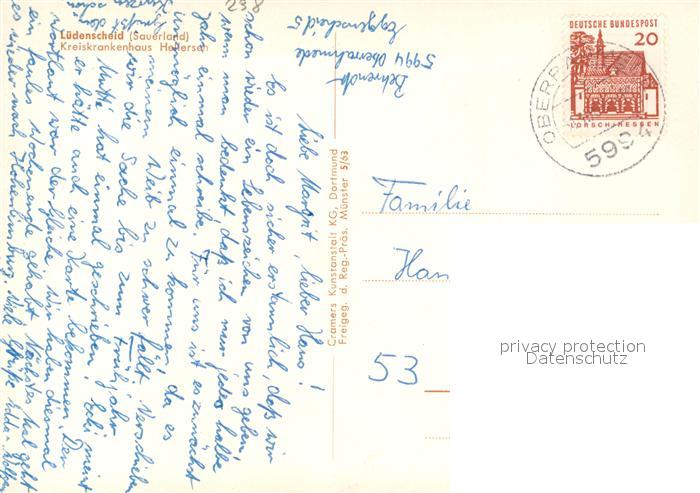 238
Lüdenscheid (Sauerland)
Kreiskrankenhaus Hellersen
Behrendt
5994 Oberrahmede
Eggenscheid 5
DEUTSCHE BUNDESPOST
20
LORSCH/HESSEN
OBERRA
5994
Liebe Margrit, lieber Hans!
Es ist doch sicher erstaunlich, daß wir
schon wieder ein Lebenszeichen von uns geben,
wenn man bedenkt, daß ich nur jedes halbe
Jahr einmal schreibe. Für uns ist es zunächst
unmöglich einmal zu kommen, da es
meinem Weib zu schwer fällt. Verschieben
wir die Sache bis zum Frühjahr.
Mutti hat einmal geschrieben. Echi meint
er hätte auch eine Karte bekommen. Der
Wortlaut war der Gleiche. Wir haben diesmal
ein faules Wochenende gehabt. Nächstes Mal geht
es wieder nach Hohenlimburg. Viele Grüße
Cramers Kunstanstalt KG, Dortmund
Freigeg. d. Reg.-Präs. Münster 5/63
Familie
Han
53
privacy protection
Datenschutz